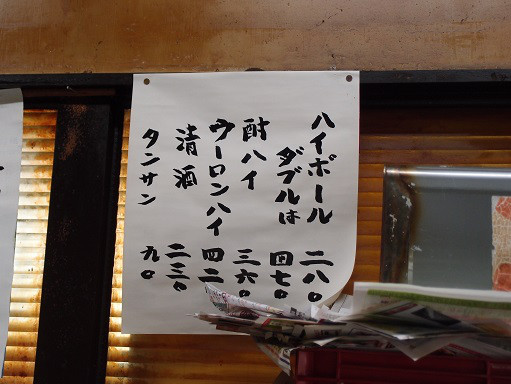 ハイボール 二八〇
ダブルは 四七〇
酎ハイ 三六〇
ウーロンハイ 四二
清酒 二三〇
タンサン 九〇